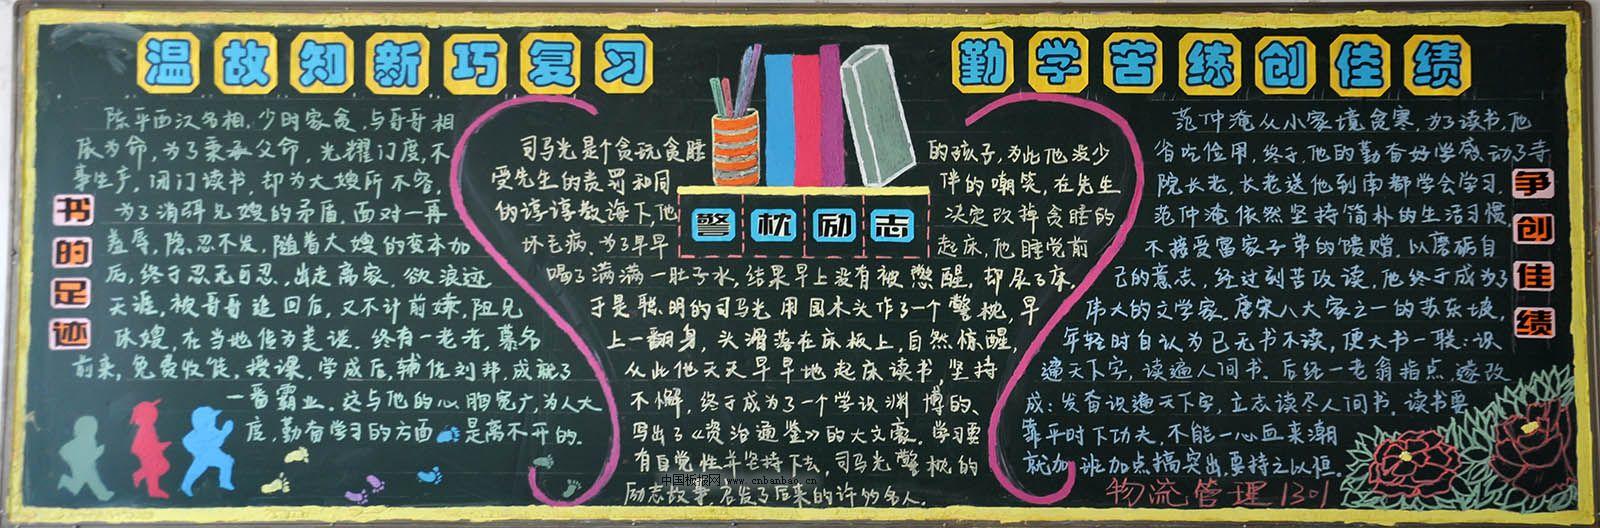 温故知新巧复习
勤学苦练创佳绩
书的足迹
陈平西汉名相,少时家贫,与哥哥相
依为命,为了秉承父命,光耀门庭,不
事生产,闭门读书,却为大嫂所不容,
为了消弭兄嫂的矛盾,面对一再
羞辱,隐忍不发,随着大嫂的变本加
后,终于忍无可忍,出走离家,欲浪迹
天涯,被哥哥追回后,又不计前嫌,阻兄
休嫂,在当地传为美谈。终有一老者,慕名
前来,免费收徒,授课,学成后,辅佐刘邦,成就了
一番霸业。这与他的心胸宽广,为人大
度,勤奋学习的方面是离不开的。
司马光是个贪玩贪睡的孩子,为此他没少
受先生的责罚和同伴的嘲笑,在先生
的谆谆教诲下,他决定改掉贪睡的
坏毛病。为了早早起床,他睡觉前
警枕励志
喝了满满一肚子水,结果早上没有被憋醒,却尿了床。
于是聪明的司马光用园木头作了一个警枕,早
上一翻身,头滑落在床板上,自然惊醒,
从此他天天早早地起床读书,坚持
不懈,终于成为了一个学识渊博的、
写出了《资治通鉴》的大文豪。学习要
有自觉性并坚持下去,司马光警枕的
励志故事启发了后来的许多名人。
范仲淹从小家境贫寒,为了读书,他
省吃俭用,终于,他的勤奋好学感动了寺
院长老,长老送他到南都学会学习.
范仲淹依然坚持简朴的生活习惯,
不接受富家子弟的馈赠,以磨砺自
己的意志,经过刻苦攻读,他终于成为了
伟大的文学家。唐宋八大家之一的苏东坡,
年轻时自认为已无书不读,便大书一联:识
遍天下字,读遍人间书。后经一老翁指点,遂改
成:发奋识遍天下字,立志读尽人间书。读书要
靠平时下功夫,不能一心血来潮
就加班加点搞突出,要持之以恒.
争创佳绩
物流管理1301
中国板报网 www.cnbanbao.cn